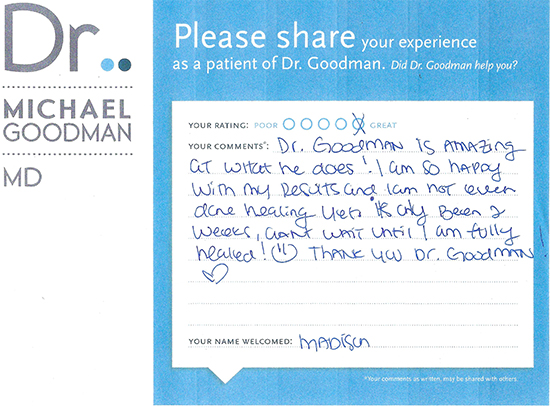 Dr.
MICHAEL
GOODMAN
MD
Please share your experience
as a patient of Dr. Goodman. Did Dr. Goodman help you?
YOUR RATING: POOR GREAT
YOUR COMMENTS*: Dr. Goodman is amazing
at what he does! I am so happy
with my results and I am not even
done healing yet. it's only been 2
weeks, can't wait until I am fully
healed! Thank you Dr. Goodman!
YOUR NAME WELCOMED: Madison
*Your comments as written, may be shared with others.